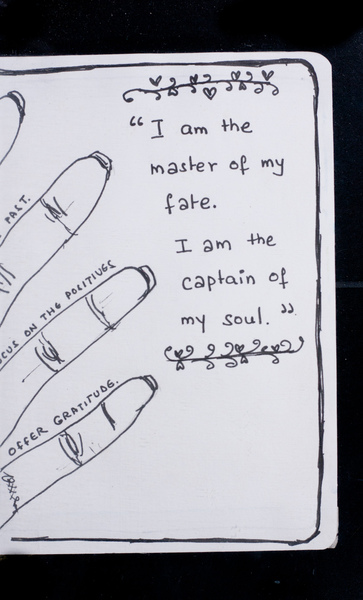 “ I am the
master of my
fate.
I am the
captain of
my soul. ”
PAST.
FOCUS ON THE POSITIVES
OFFER GRATITUDE.